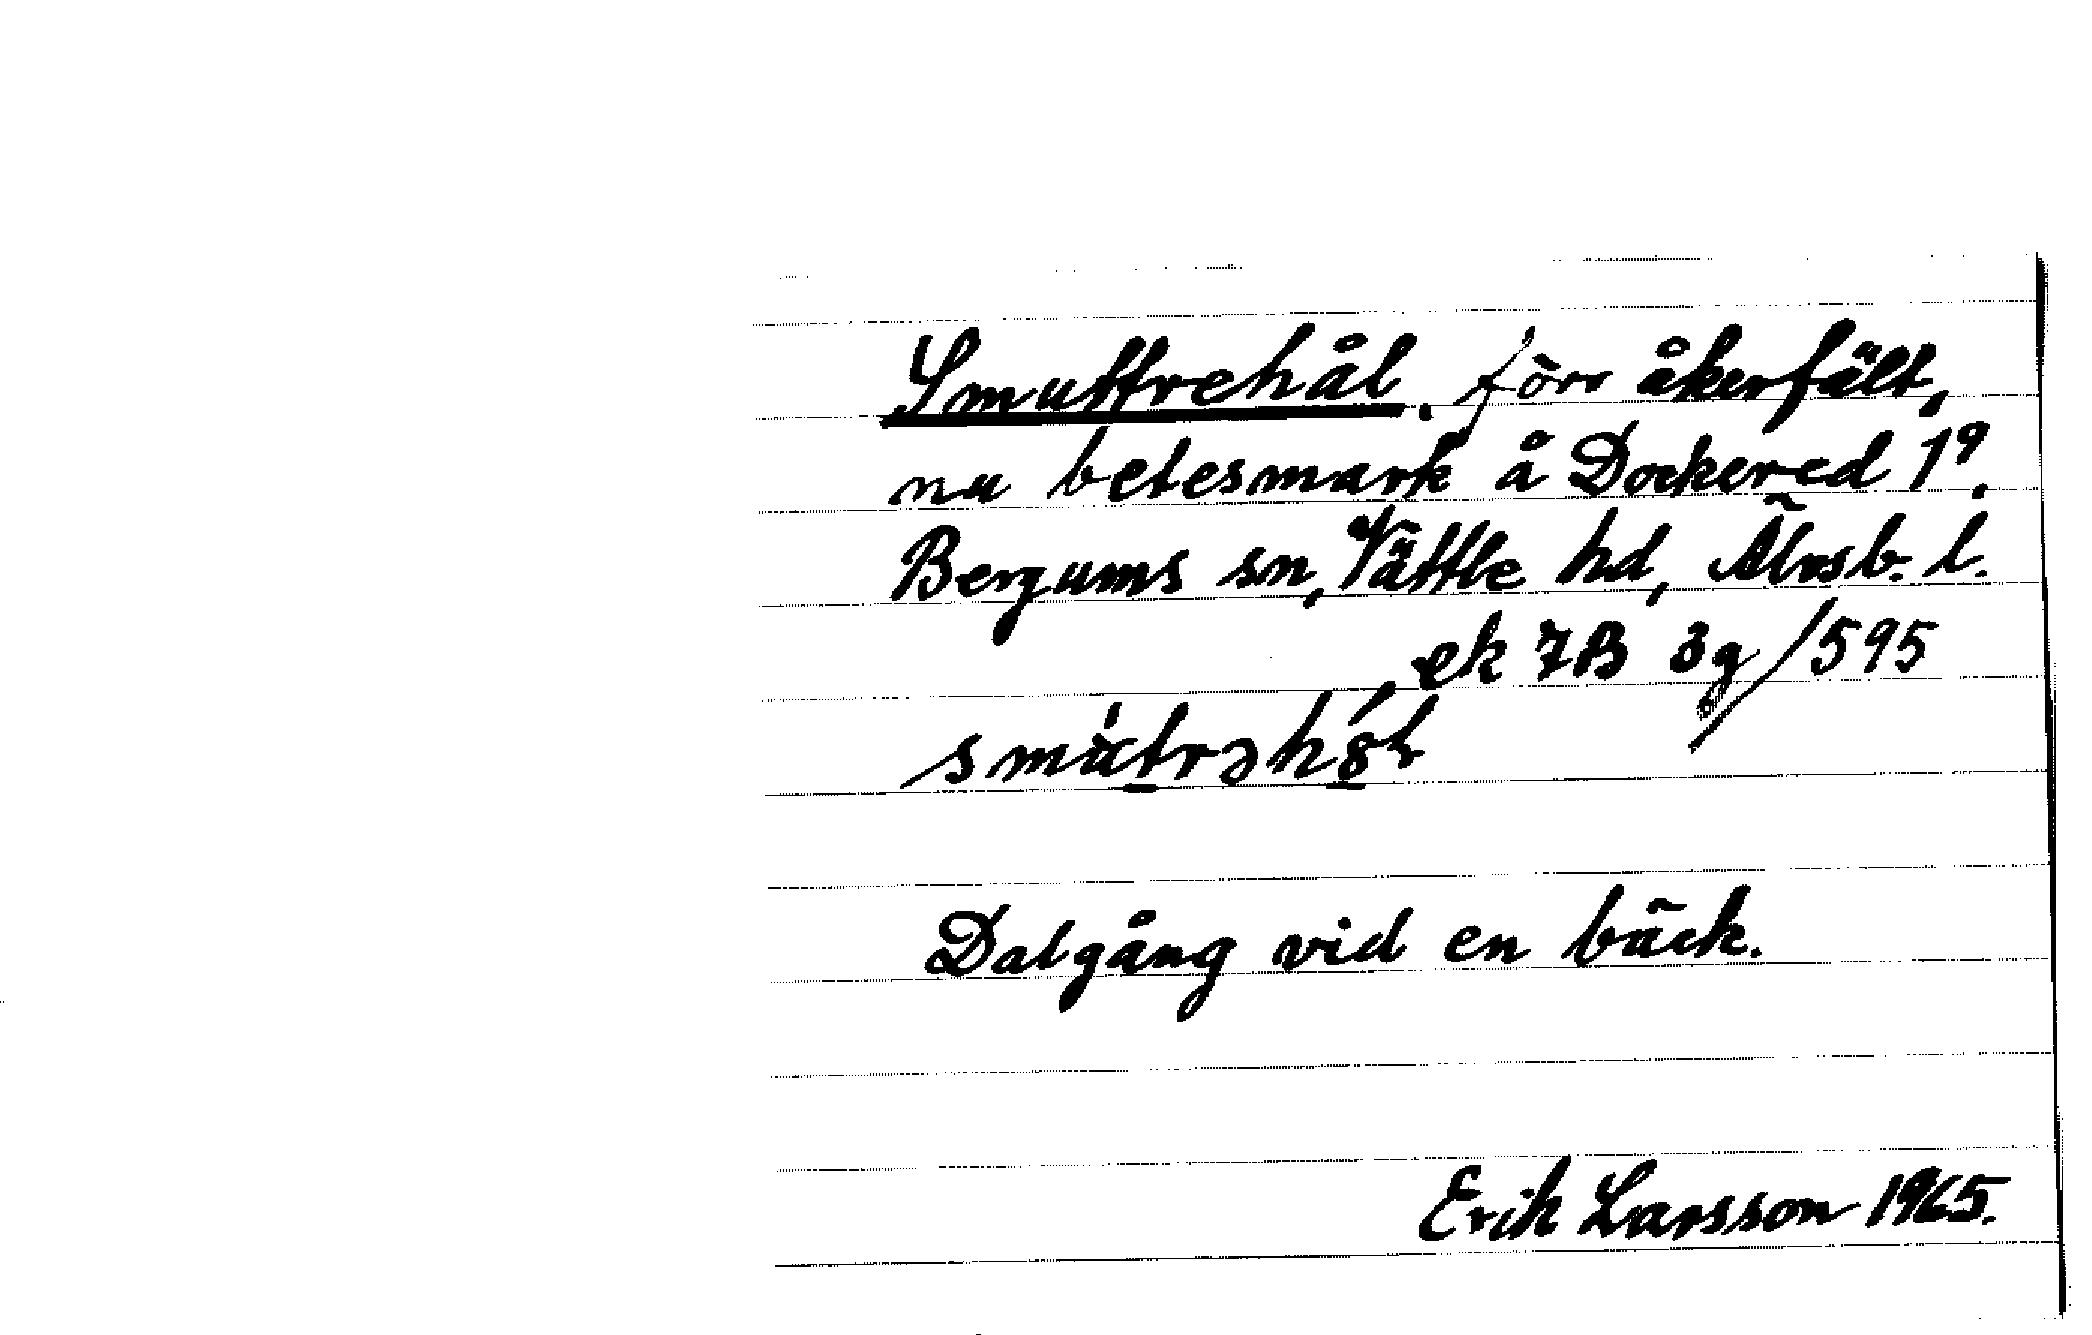 Smuttrehål. förr åkerfält,
nu betesmark å Dockered 1⁹.
Bergums sn, Vättle hd, Älvsb. l.
ek 7B 3g/595
Dalgång vid en bäck.
Erik Larsson 1965.